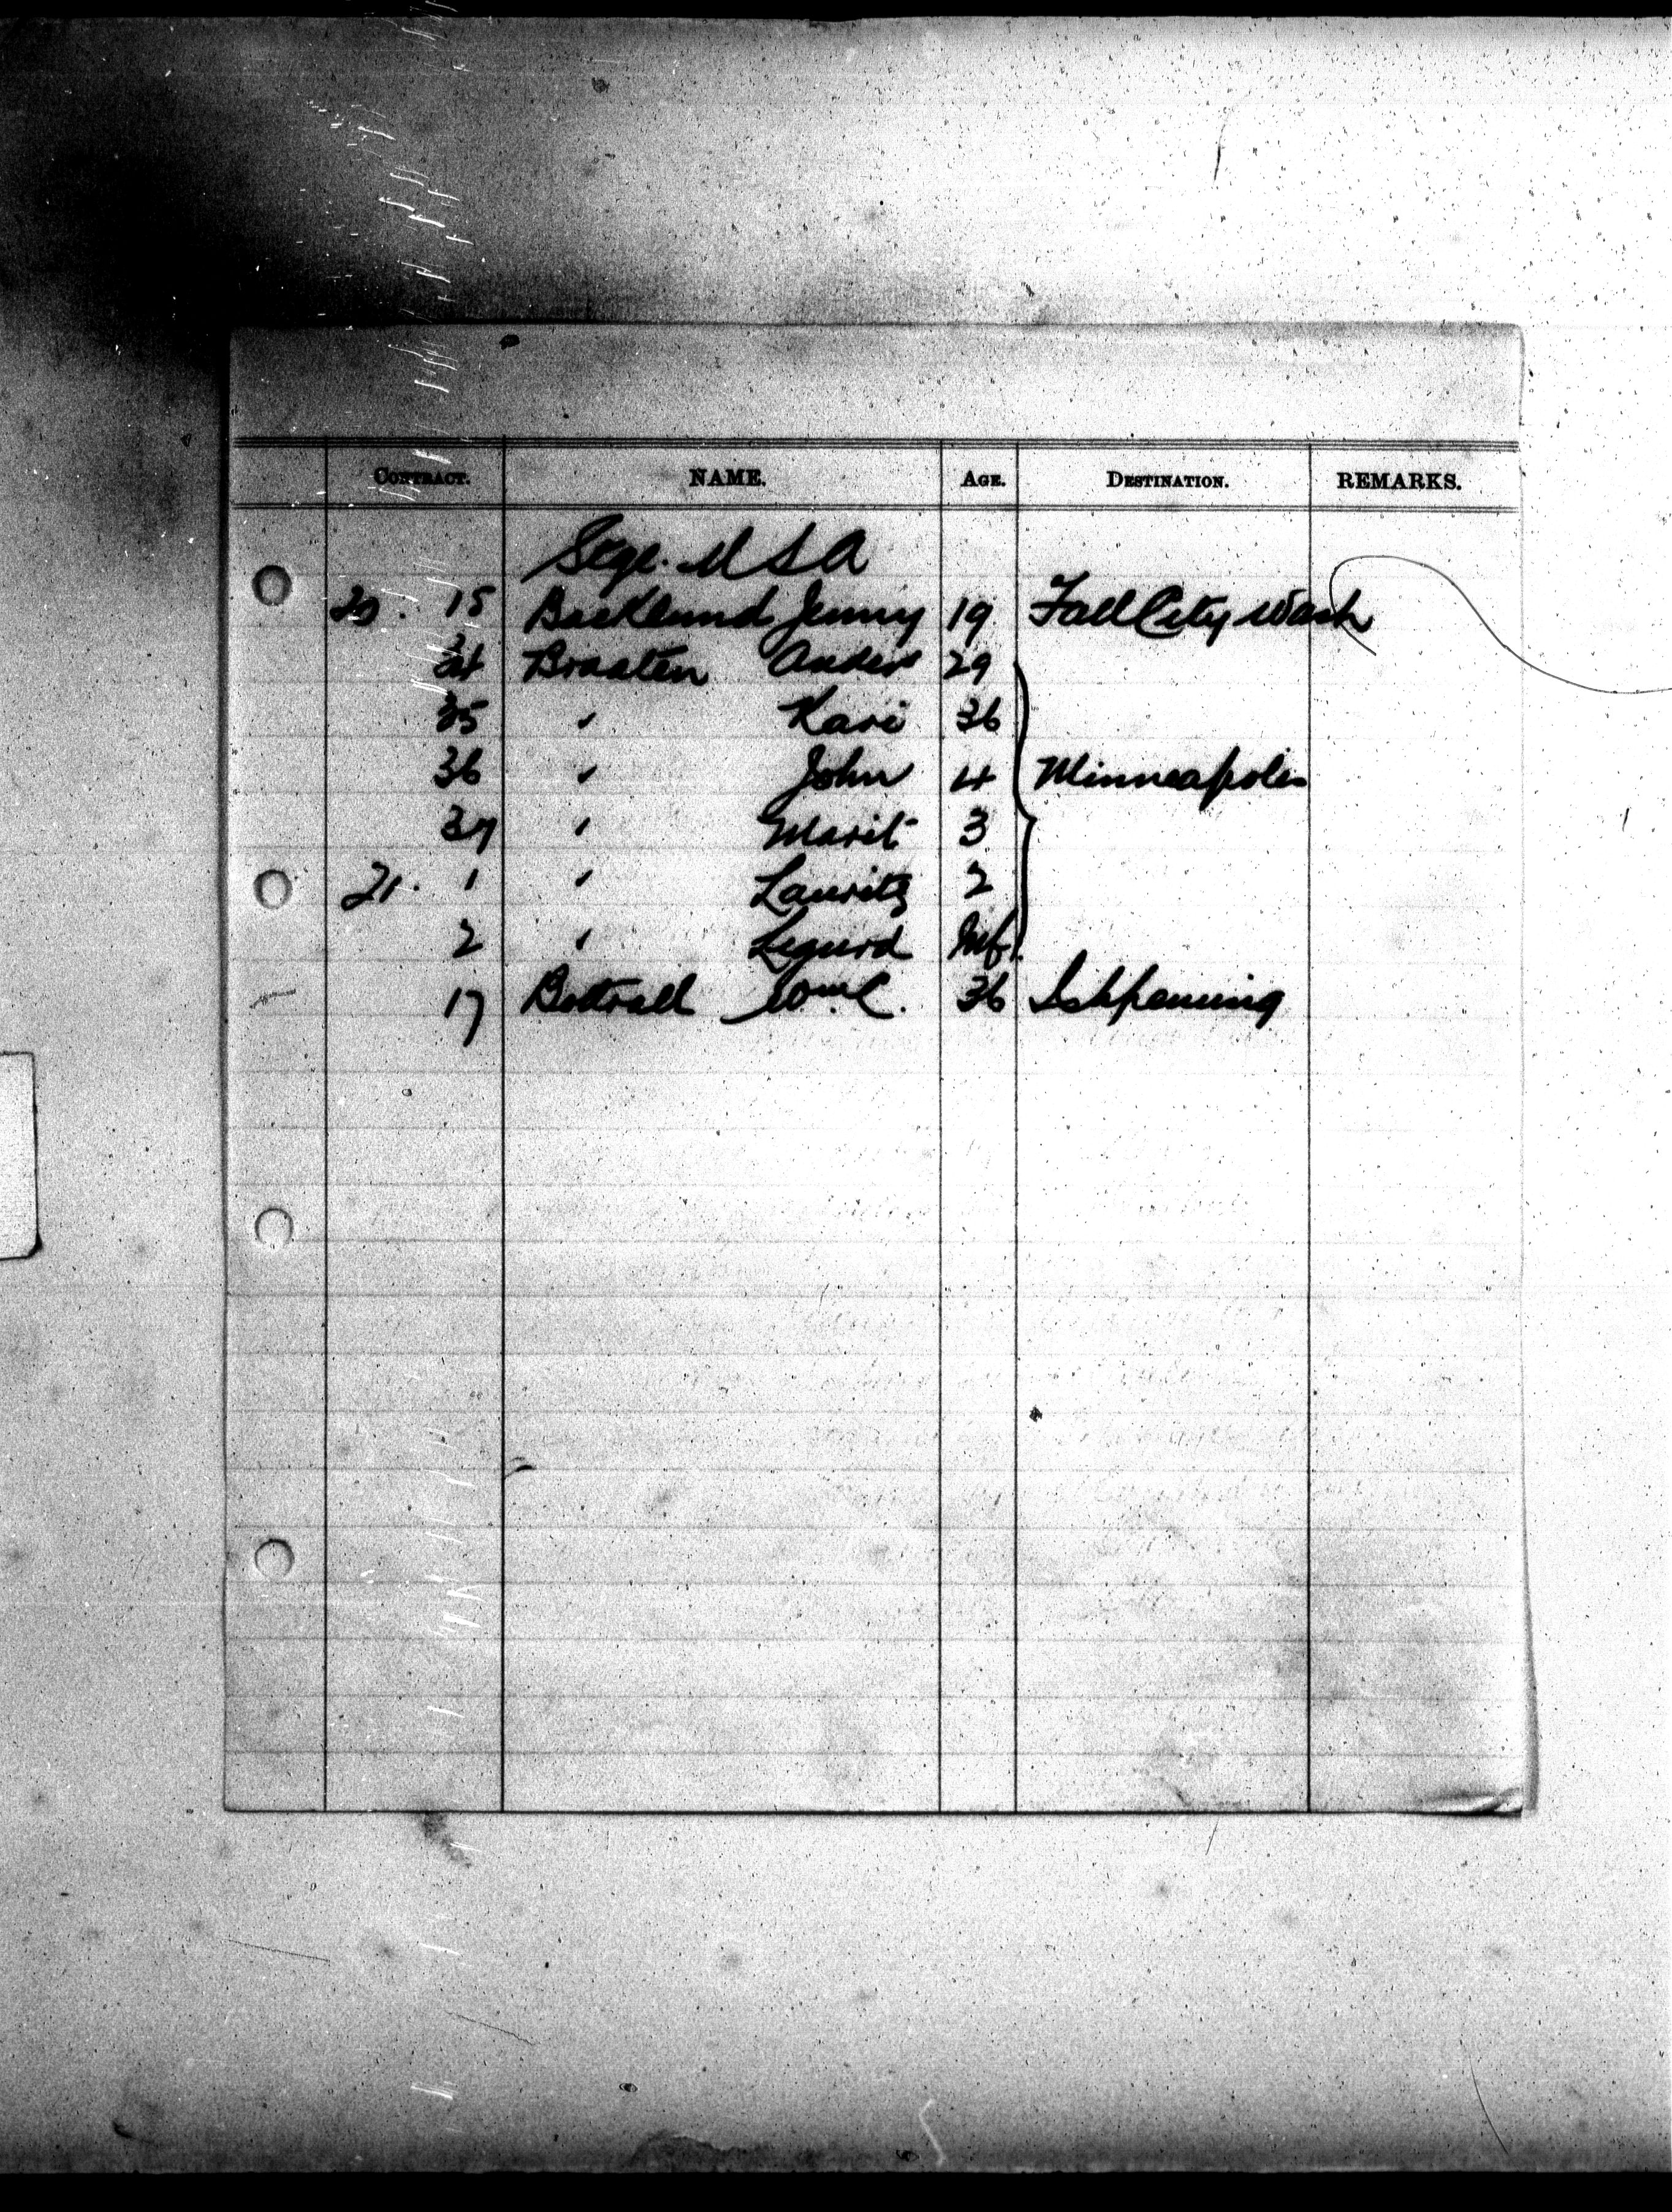 CONTRACT. NAME. AGE. DESTINATION. REMARKS.
Stge. USA
20. 15 Backlund Jenny 19 Fall City Wash
34 Braaten Anders 29
35 " Kari 36
36 " John 4 Minneapolis
37 " Marit 3
21. 1 " Lauritz 2
2 " Sigurd Inf.
17 Bottrall Wm C. 36 Ishpeming